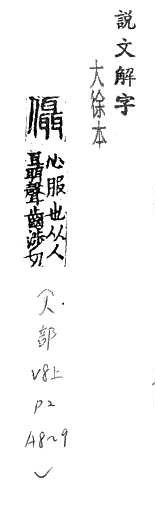 說文解字
大徐本
㒤
心服也从人
聶聲齒涉切
(人部
V8上
P2
A8~9)